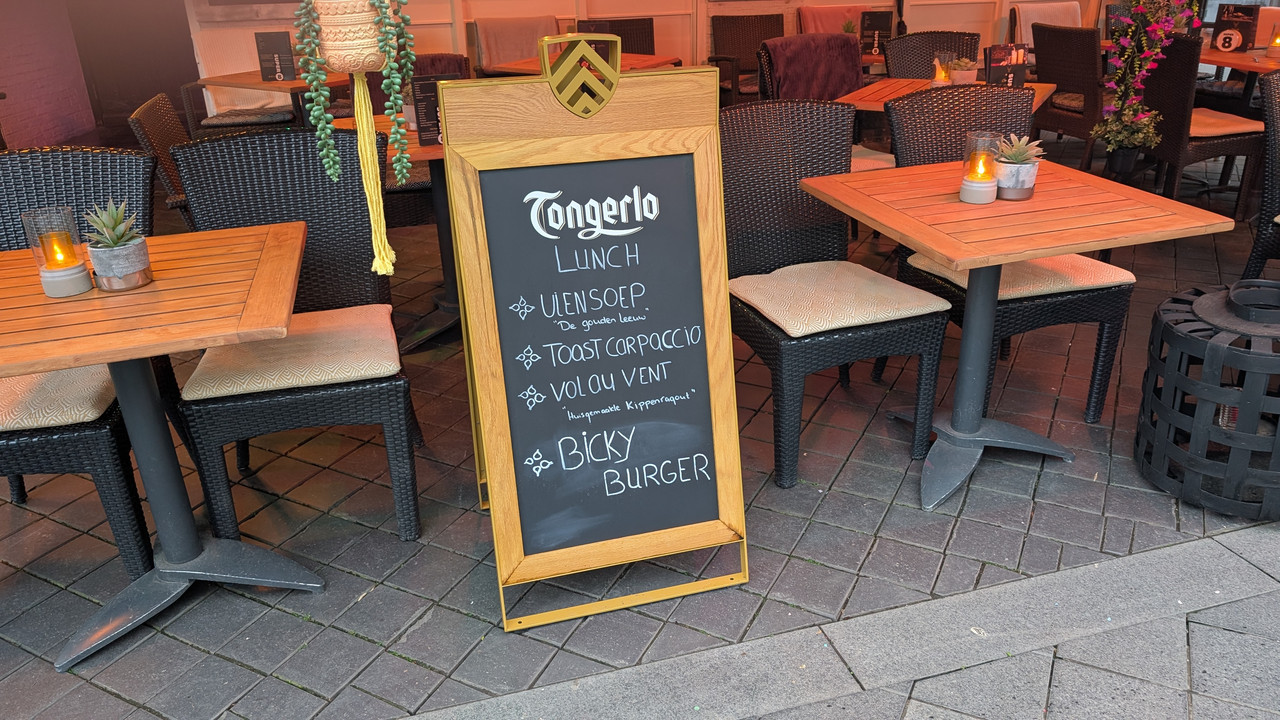 Tongerlo
LUNCH
UIENSOEP
"De gouden leeuw"
TOAST CARPACCIO
VOL AU VENT
"Huisgemaakte Kippenragout"
BICKY
BURGER
8